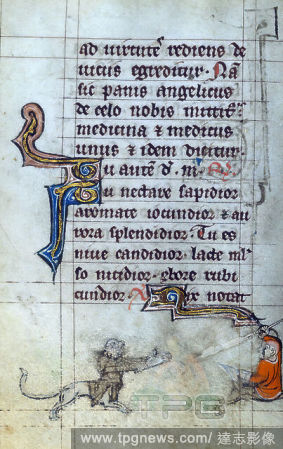 ad virtutē rediens de
uicus egreditur. Nā
sic panis angelicus
de celo nobis mittit̄
medicina & medicus
unus & idem dicitur.
Tu autē d. m.
Tu nectare sapidior
aromate iocundior & au
rora splendidior. Tu es
niue candidior. lacte ml̄
so nitidior. ebore rubi
cundior. Nox notat
TPG
www.tpgnews.com/達志影像